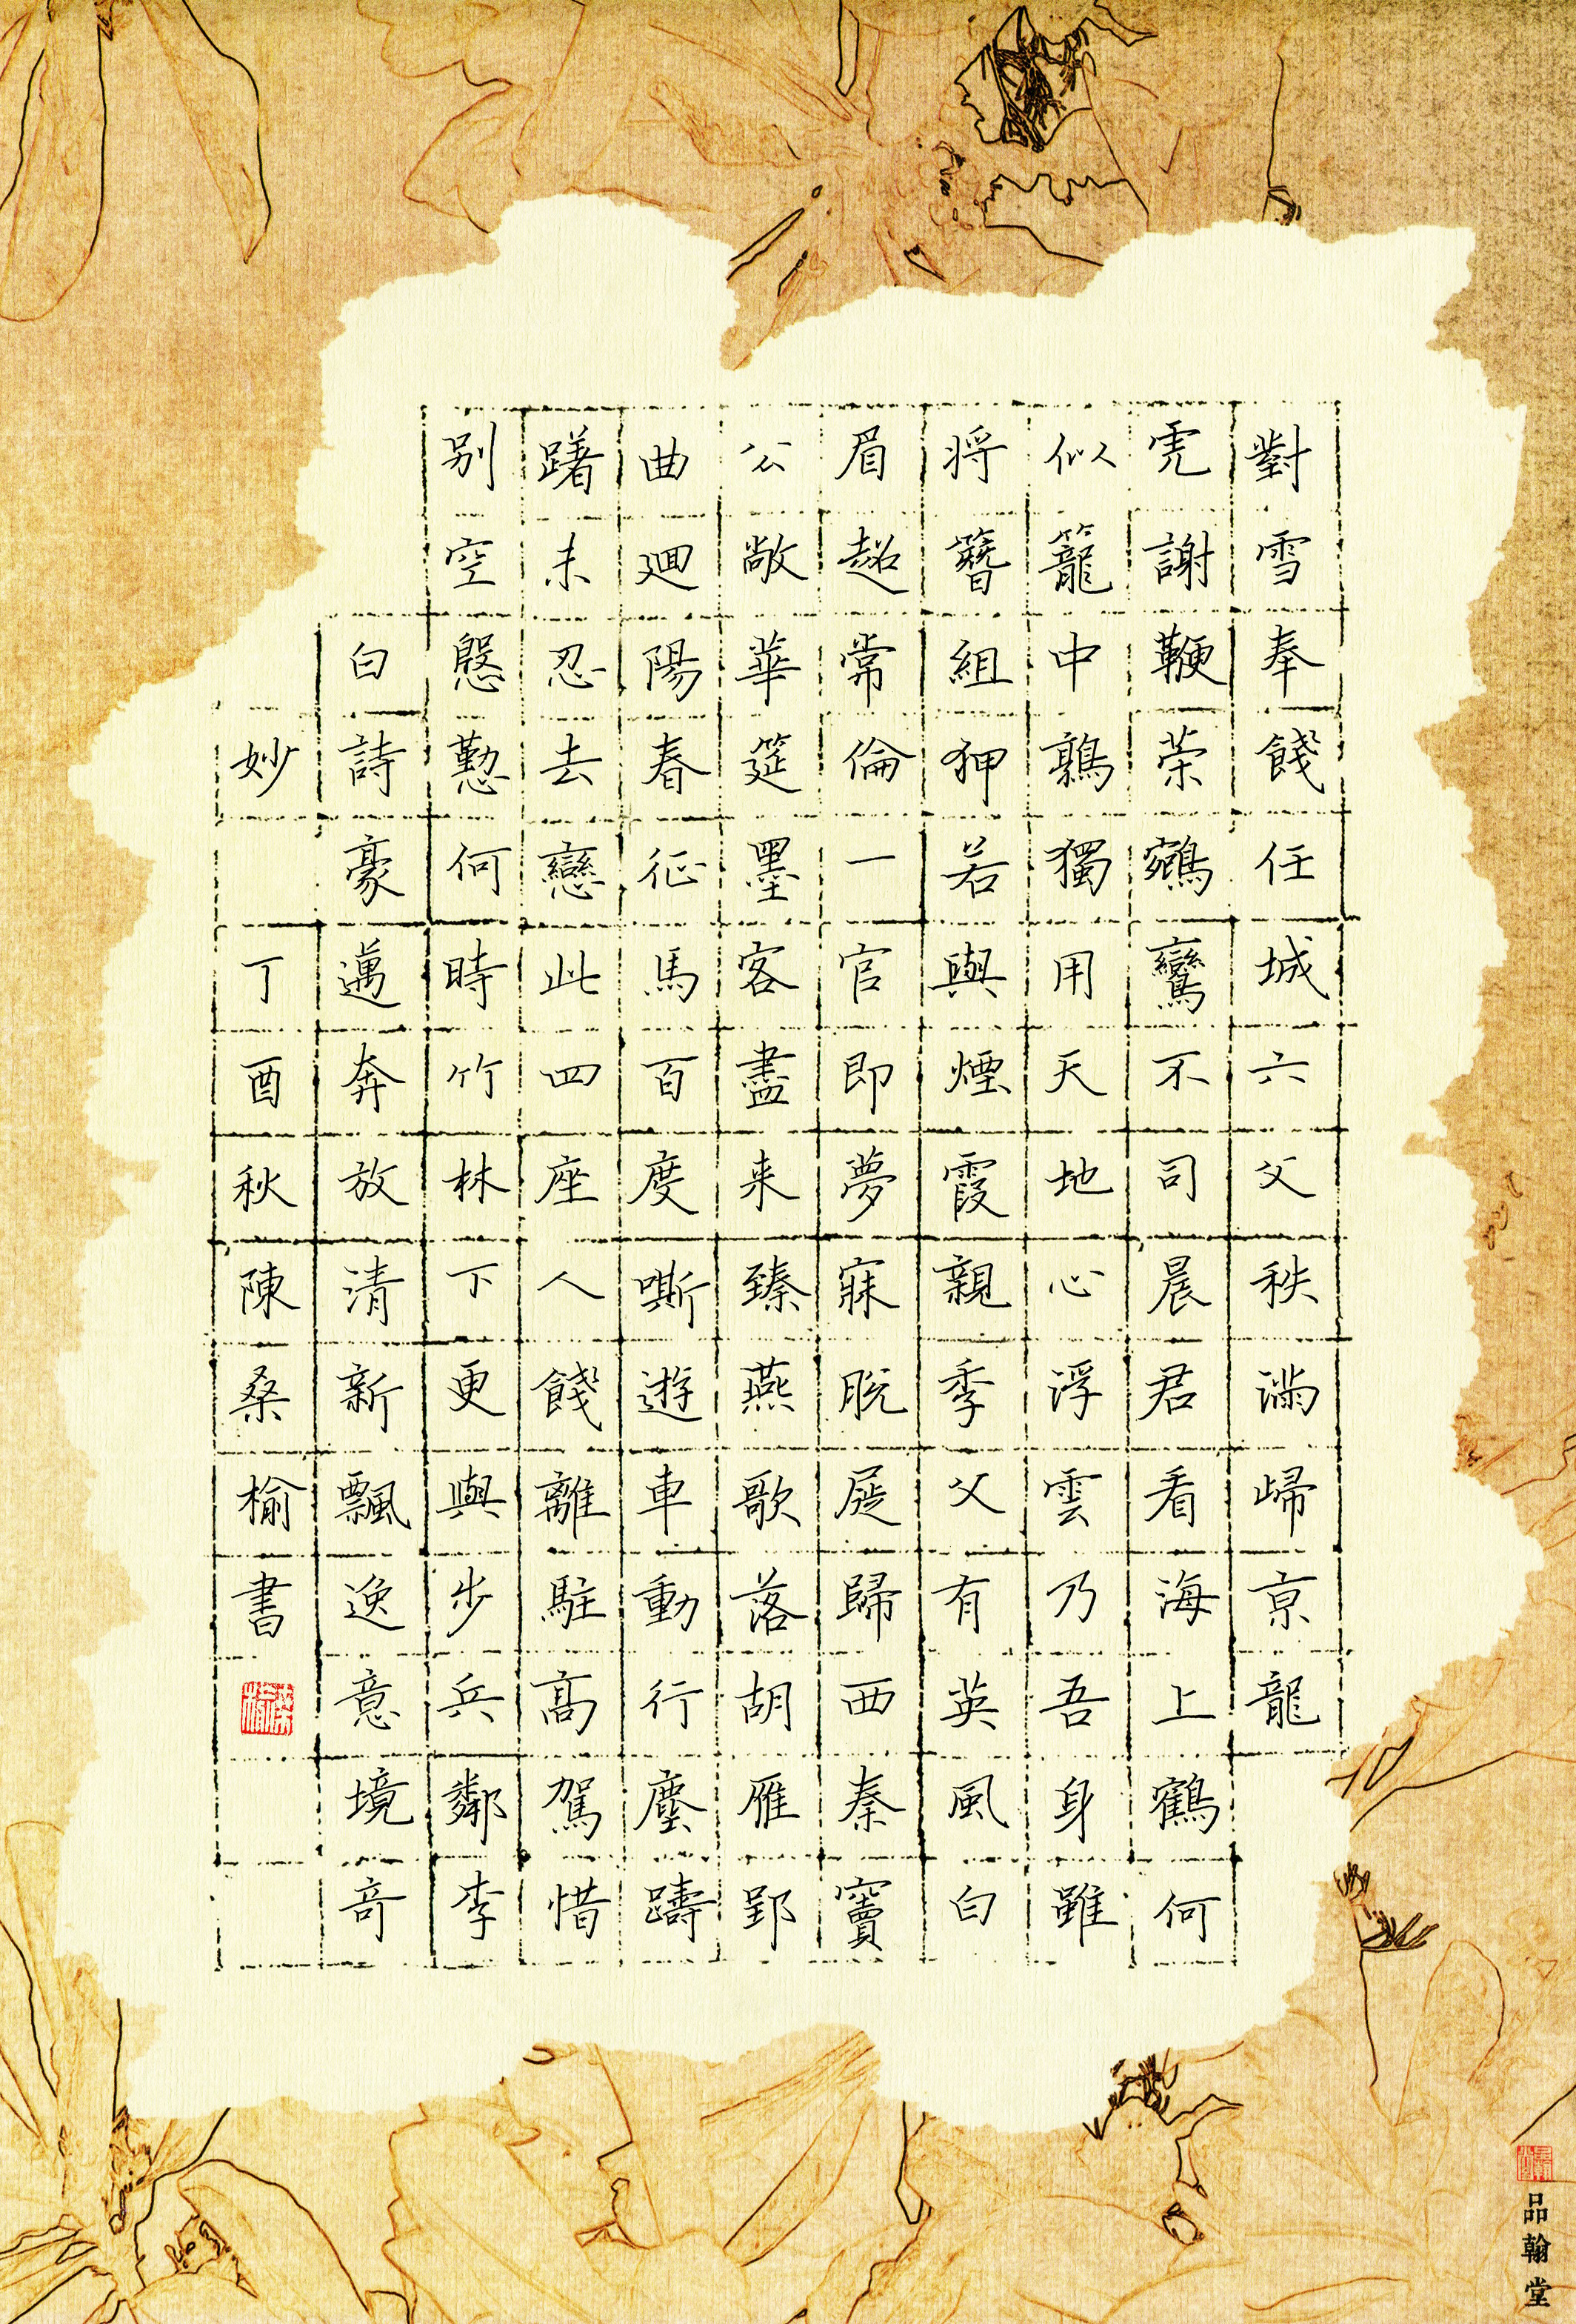 對雪奉餞任城六父秩滿歸京龍
虎謝鞭策鵷鸞不司晨君看海上鶴何
似籠中鶉獨用天地心浮雲乃吾身雖
將簪組狎若與煙霞親季父有英風白
眉超常倫一官即夢寐脫屣歸西秦竇
公敞華筵墨客盡来臻燕歌落胡雁郢
曲廻陽春征馬百度嘶遊車動行塵躊
躇未忍去戀此四座人餞離駐高駕惜
别空慇懃何時竹林下更與步兵鄰李
白詩豪邁奔放清新飄逸意境奇
妙 丁酉秋陳桑榆書
品翰堂